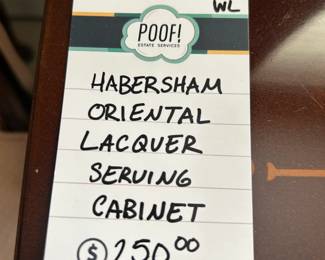 WL
POOF!
ESTATE SERVICES
HABERSHAM
ORIENTAL
LACQUER
SERVING
CABINET
$250.00